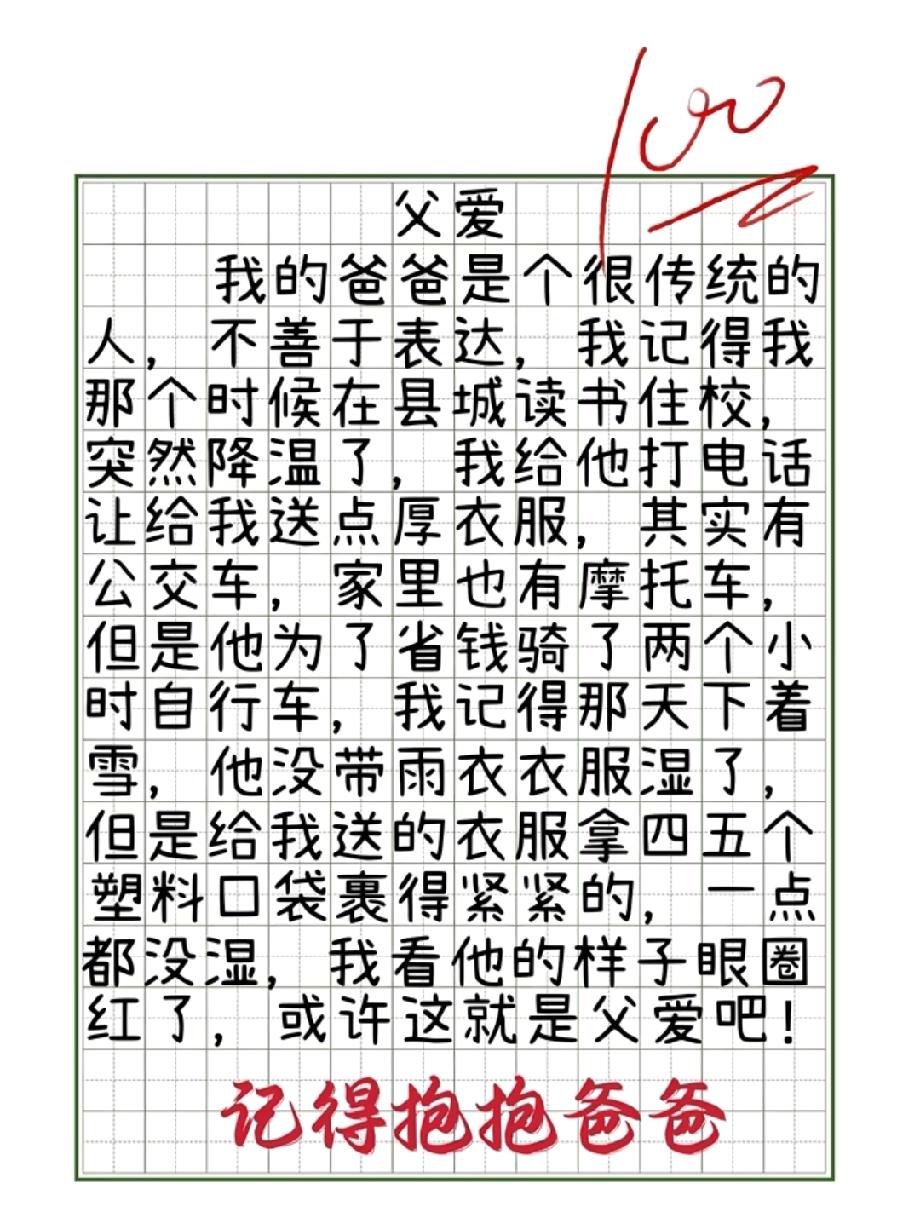 100
父爱
我的爸爸是个很传统的
人，不善于表达，我记得我
那个时候在县城读书住校，
突然降温了，我给他打电话
让给我送点厚衣服，其实有
公交车，家里也有摩托车，
但是他为了省钱骑了两个小
时自行车，我记得那天下着
雪，他没带雨衣衣服湿了，
但是给我送的衣服拿四五个
塑料口袋裹得紧紧的，一点
都没湿，我看他的样子眼圈
红了，或许这就是父爱吧！
记得抱抱爸爸